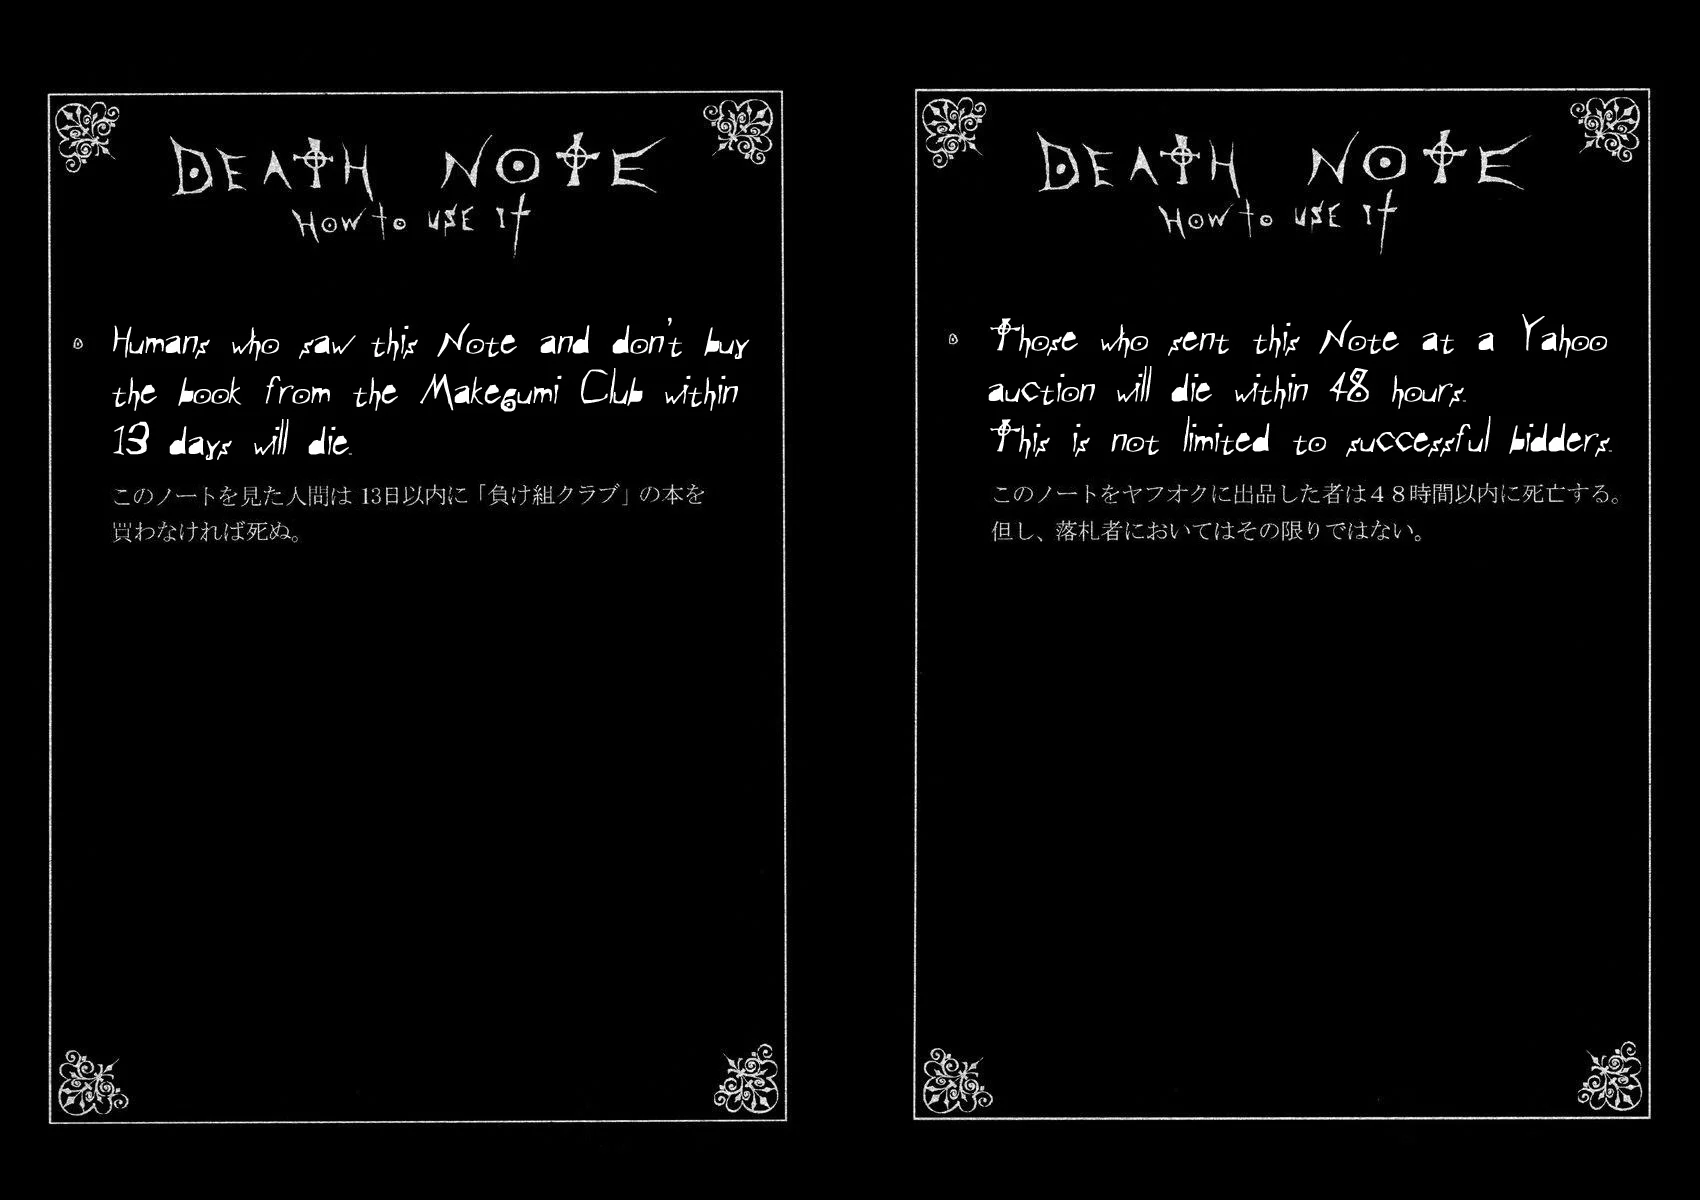 DEATH NOTE
HOW TO USE IT
Humans who saw this Note and don't buy
the book from the Makegumi Club within
13 days will die.
このノートを見た人間は 13日以内に「負け組クラブ」の本を
買わなければ死ぬ。
DEATH NOTE
HOW TO USE IT
Those who sent this Note at a Yahoo
auction will die within 48 hours.
This is not limited to successful bidders.
このノートをヤフオクに出品した者は４８時間以内に死亡する。
但し、落札者においてはその限りではない。